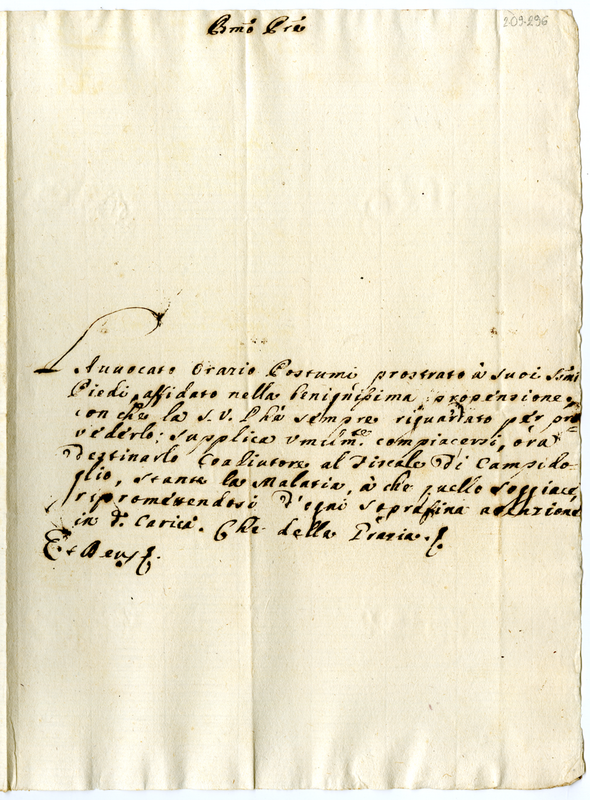 Bmo Pre
209-296
L'Avvocato Orazio Postumi prostrato à suoi Ssmi
Piedi, affidato nella benignissima propensione,
con che la S.V. l'hà sempre riguardato per pro=
vederlo; supplica vmilmte compiacersi, ora
destinarlo Coadiutore al Fiscale di Campido=
glio, stante la Malatia, à che quello soggiace,
ripromettendosi d'ogni soprafina attenzione
in da Carica. Che della Grazia.
Et Deus